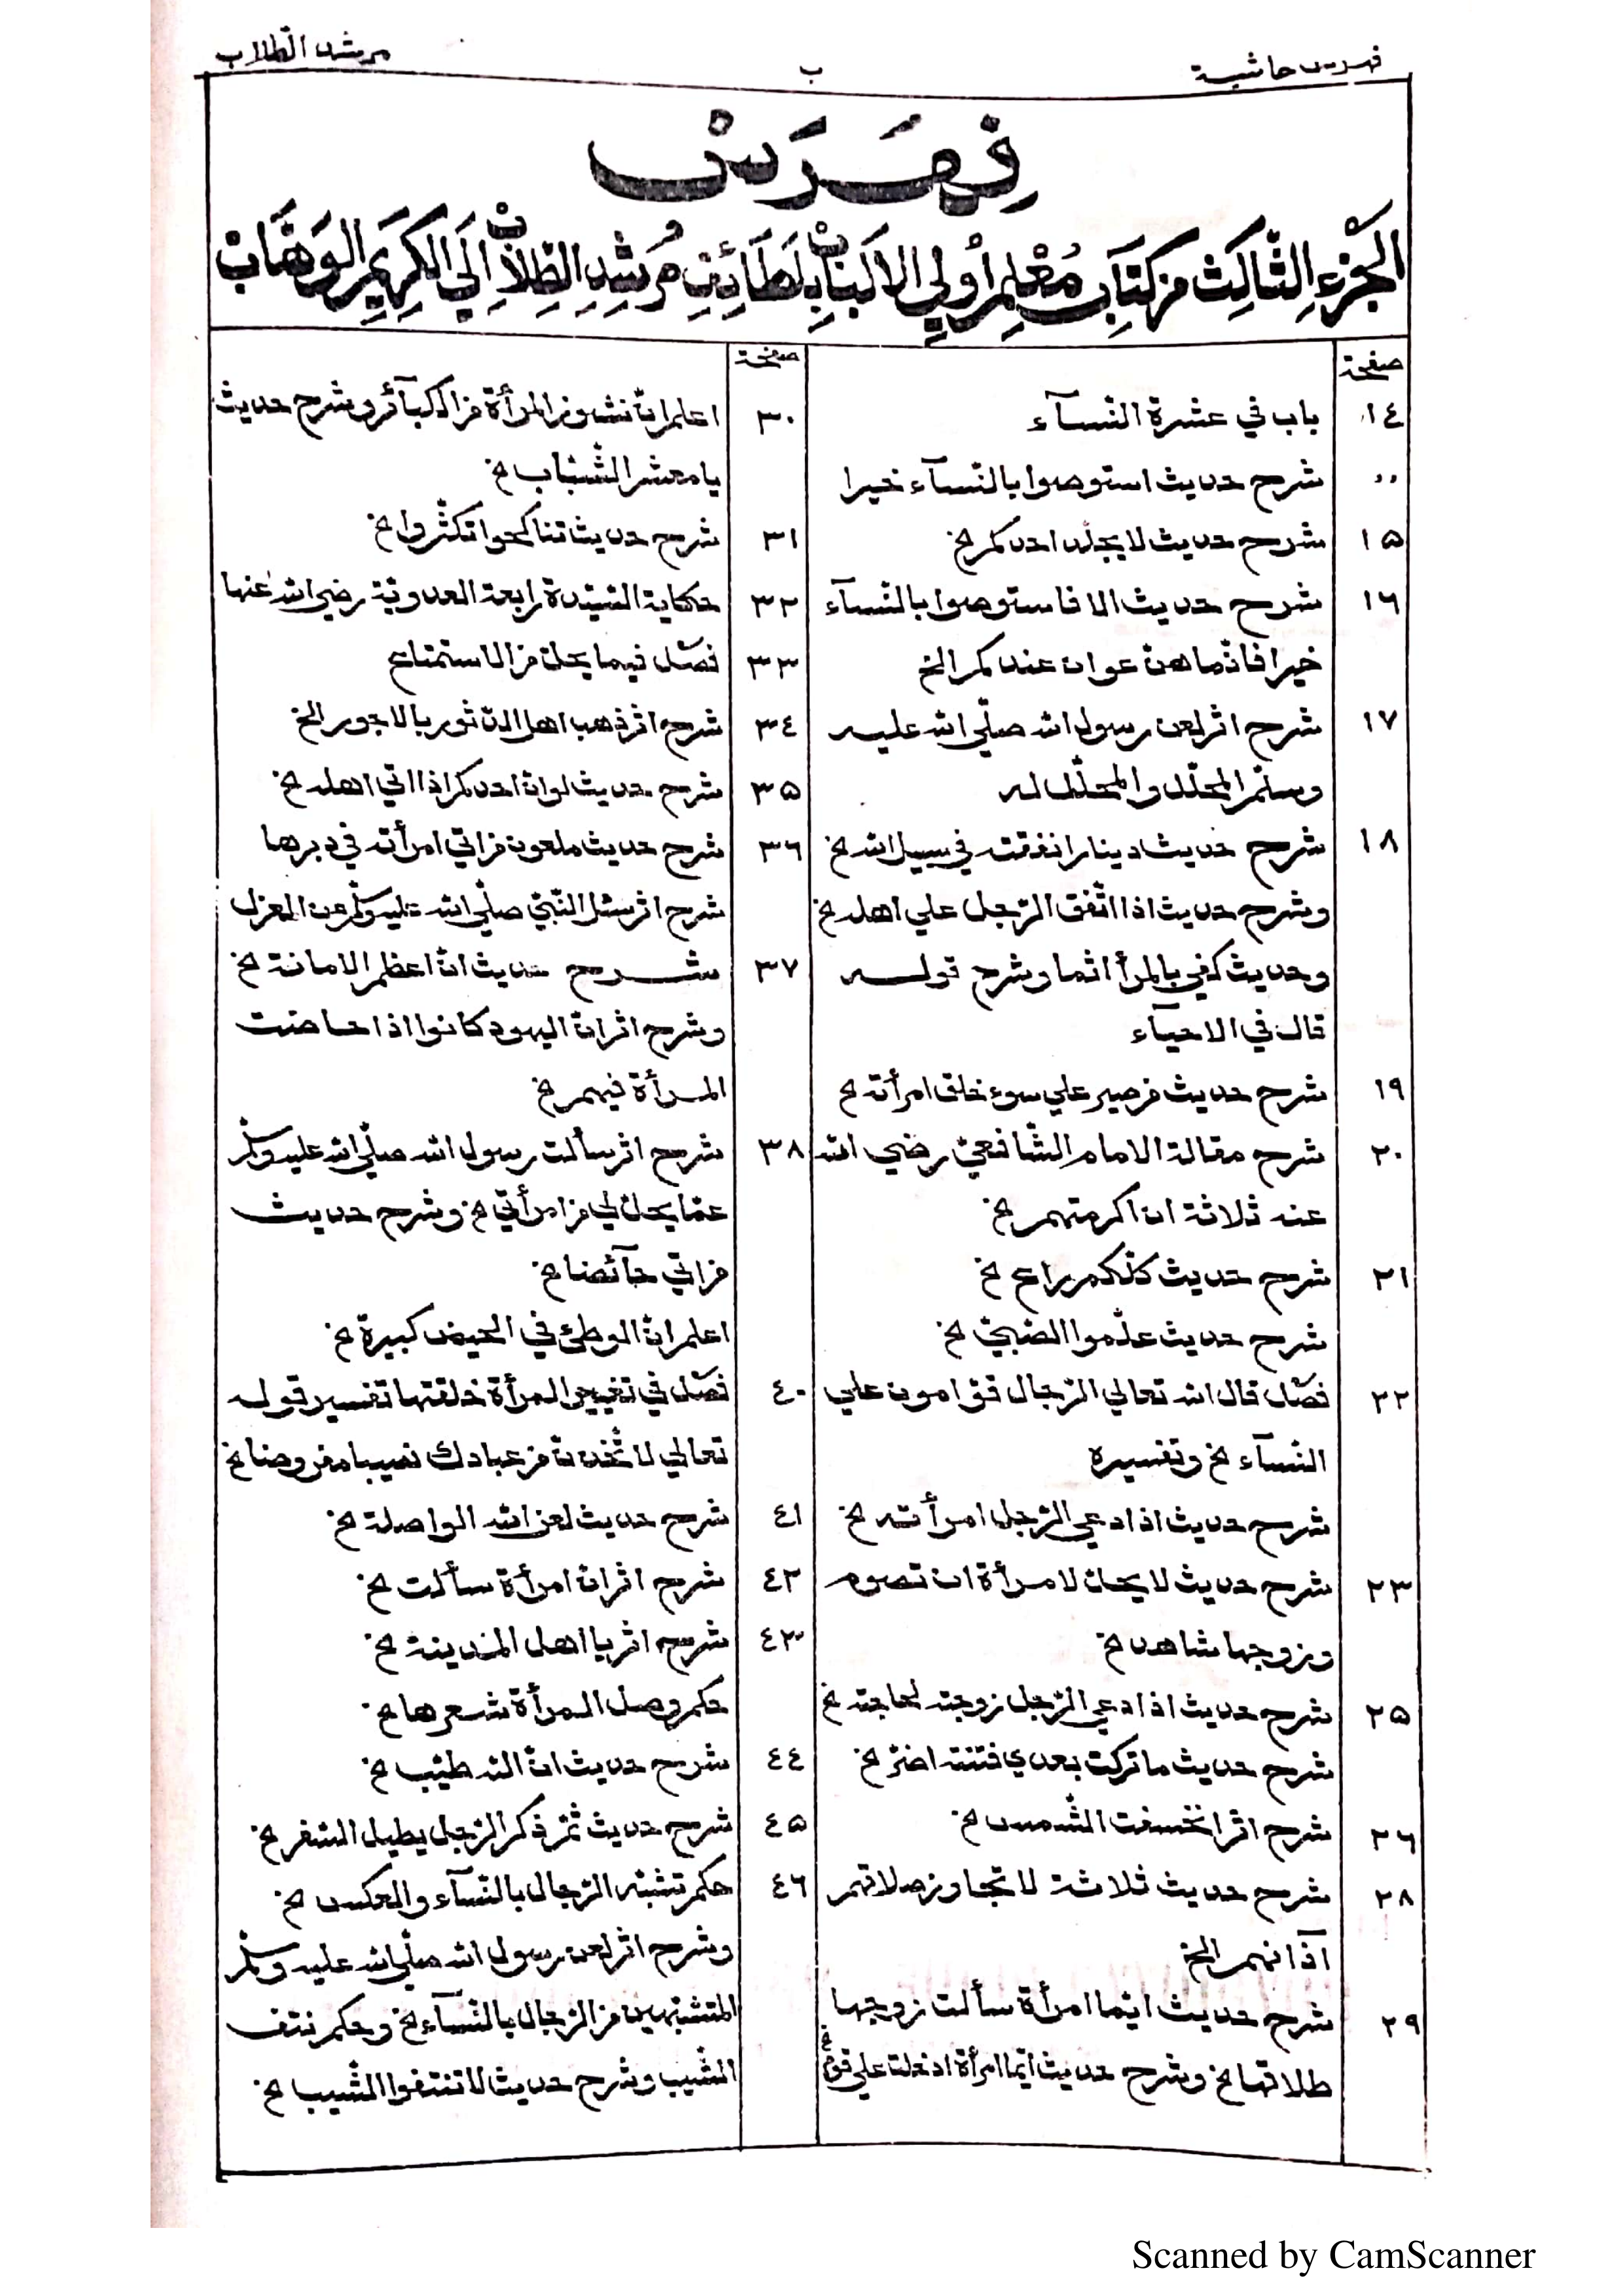 فهرس حاشية
ب
مرشد الطلاب
فِهْرَسْ
الجُزْءِ الثَّالِثْ مِنْ كِتَابِ مُعْلِمِ أُولِي الاَلْبَابْ بِلَطَائِفِ مُرْشِدِ الطُّلاَّبْ اِلَي الكَرِيْمِ الوَهَّابْ
صفحة
١٤ باب في عشرة النسآء
״ شرح حديث استوصوا بالنّسآء خيرا
١٥ شرح حديث لا يجلد احدكم لخ
١٦ شرح حديث الا فاستوصوا بالنّسآء
خيرا فانّما هنّ عوان عندكم الخ
١٧ شرح اثر لعن رسول الله صلّي الله عليه
وسلّم المحلّل والمحلّل له
١٨ شرح حديث دينار انفقته في سبيل الله لخ
وشرح حديث اذا انّفق الرّجل علي اهله لخ
وحديث كفي بالمرأ اثما وشرح قوله
قال في الاحيآء
١٩ شرح حديث من صبر علي سوء خلق امرأته لخ
٢٠ شرح مقالة الامام الشّافعيّ رضي الله
عنه ثلاثة ان اكرمتهم لخ
٢١ شرح حديث كلّكم راع لخ
شرح حديث علّموا الصّبيّ لخ
٢٢ فصّل قال الله تعالي الرّجال قوّامون علي
النّسآء لخ وتفسيره
شرح حديث اذا دعي الرّجل امرأته لخ
٢٣ شرح حديث لا يحلّ لامرأة ان تصوم
وزوجها شاهد لخ
٢٥ شرح حديث اذا دعي الرّجل زوجته لحاجته لخ
شرح حديث ما تركت بعدي فتنة اضرّ لخ
٢٦ شرح اثر انخسفت الشّمس لخ
٢٨ شرح حديث ثلاثة لا تجاوز صلاتهم
آذانهم الخ
٢٩ شرح حديث ايّما امرأة سألت زوجها
طلاقها لخ وشرح حديث ايّما امرأة ادخلت علي قوم لخ
صفحة
٣٠ اعلم انّ نشوز المرأة من الكبآئر وشرح حديث
يا معشر الشّبّاب لخ
٣١ شرح حديث تناكحوا تكثّروا لخ
٣٢ حكاية السّيّدة رابعة العدويّة رضي الله عنها
٣٣ فصّل فيما يحلّ من الاستمتاع
٣٤ شرح اثر ذهب اهل الدّثور بالاجور الخ
٣٥ شرح حديث لو انّ احدكم اذا اتي اهله لخ
٣٦ شرح حديث ملعون من اتي امرأته في دبرها
شرح اثر سئل النّبيّ صلّي الله عليه وسلّم عن العزل
٣٧ شرح حديث انّ اعظم الامانة لخ
وشرح اثر انّ اليهود كانوا اذا حاضت
المرأة فيهم لخ
٣٨ شرح اثر سألت رسول الله صلّي الله عليه وسلّم
عمّا يحلّ لي من امرأتي لخ وشرح حديث
من اتي حآئضا لخ
اعلم انّ الوطئ في الحيض كبيرة لخ
٤٠ فصّل في تغيير المرأة خلقتها تفسير قوله
تعالي لاتّخذنّ من عبادك نصيبا مفروضا لخ
٤١ شرح حديث لعن الله الواصلة لخ
٤٢ شرح اثر انّ امرأة سألت لخ
٤٣ شرح اثر يا اهل المدينة لخ
حكم وصل المرأة شعرها لخ
٤٤ شرح حديث انّ الله طيّب لخ
٤٥ شرح حديث ثمّ ذكر الرّجل يطيل السّفر لخ
٤٦ حكم تشبّه الرّجال بالنّسآء والعكس لخ
وشرح اثر لعن رسول الله صلّي الله عليه وسلّم
المتشبّهين من الرّجال بالنّسآء لخ وحكم نتف
الشّيب وشرح حديث لا تنتفوا الشّيب لخ
Scanned by CamScanner